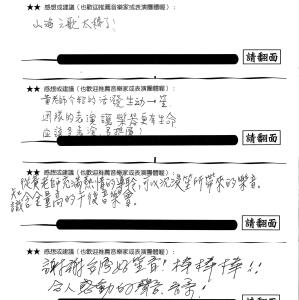 ★★ 感想或建議（也歡迎推薦音樂家或表演團體喔）：
山海之歌太棒了！
請翻面
★★ 感想或建議（也歡迎推薦音樂家或表演團體喔）：
黃老師介紹的活潑生動→笙
團隊的表演讓樂器更有生命
應該多表演
請翻面
★★ 感想或建議（也歡迎推薦音樂家或表演團體喔）：
從黃老師充滿熱情的導聆，可以沉浸笙所帶來的樂音。
知識含金量高的下午從音樂會。
請翻面
★★ 感想或建議（也歡迎推薦音樂家或表演團體喔）：
謝謝台灣好笙音！棒棒棒！！
令人感動的聲音
請翻面